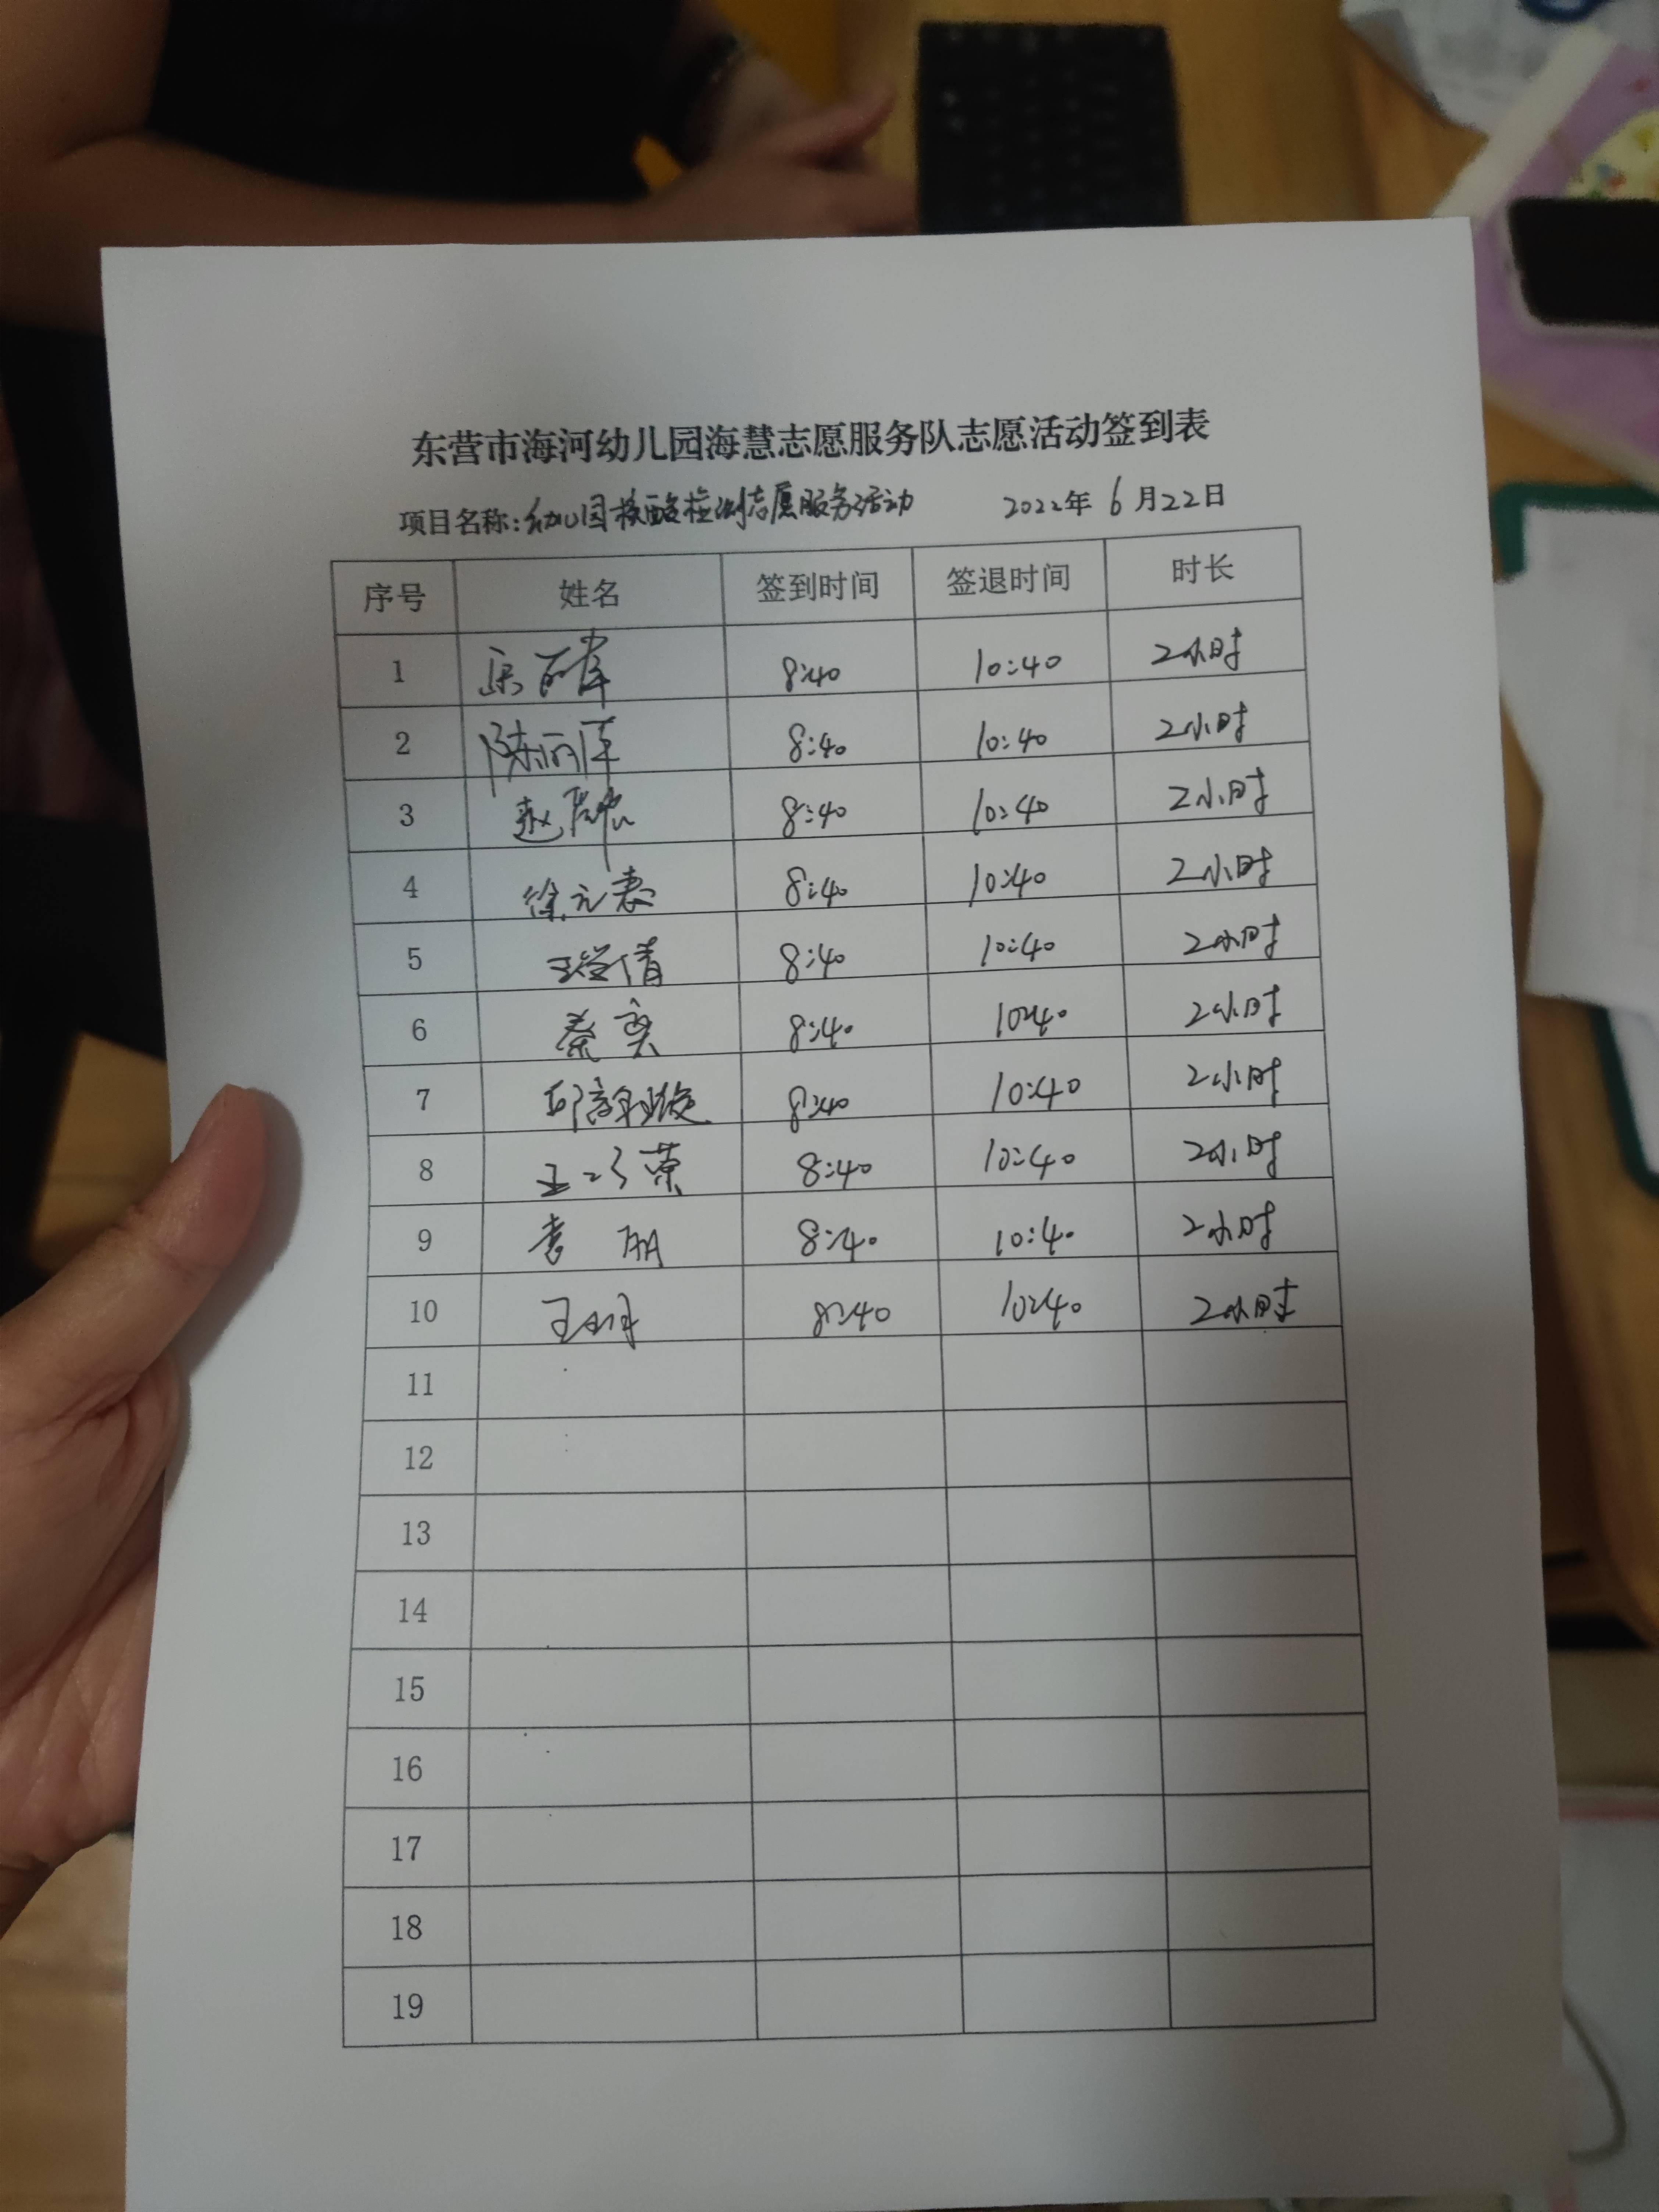 东营市海河幼儿园海慧志愿服务队志愿活动签到表
项目名称:幼儿园核酸检测志愿服务活动 2022年 6月22日
序号 姓名 签到时间 签退时间 时长
1 8:40 10:40 2小时
2 陈丽萍 8:40 10:40 2小时
3 赵 8:40 10:40 2小时
4 徐元慧 8:40 10:40 2小时
5 倩 8:40 10:40 2小时
6 秦 8:40 10:40 2小时
7 8:40 10:40 2小时
8 王 荣 8:40 10:40 2小时
9 李 朋 8:40 10:40 2小时
10 王 8:40 10:40 2小时
11
12
13
14
15
16
17
18
19